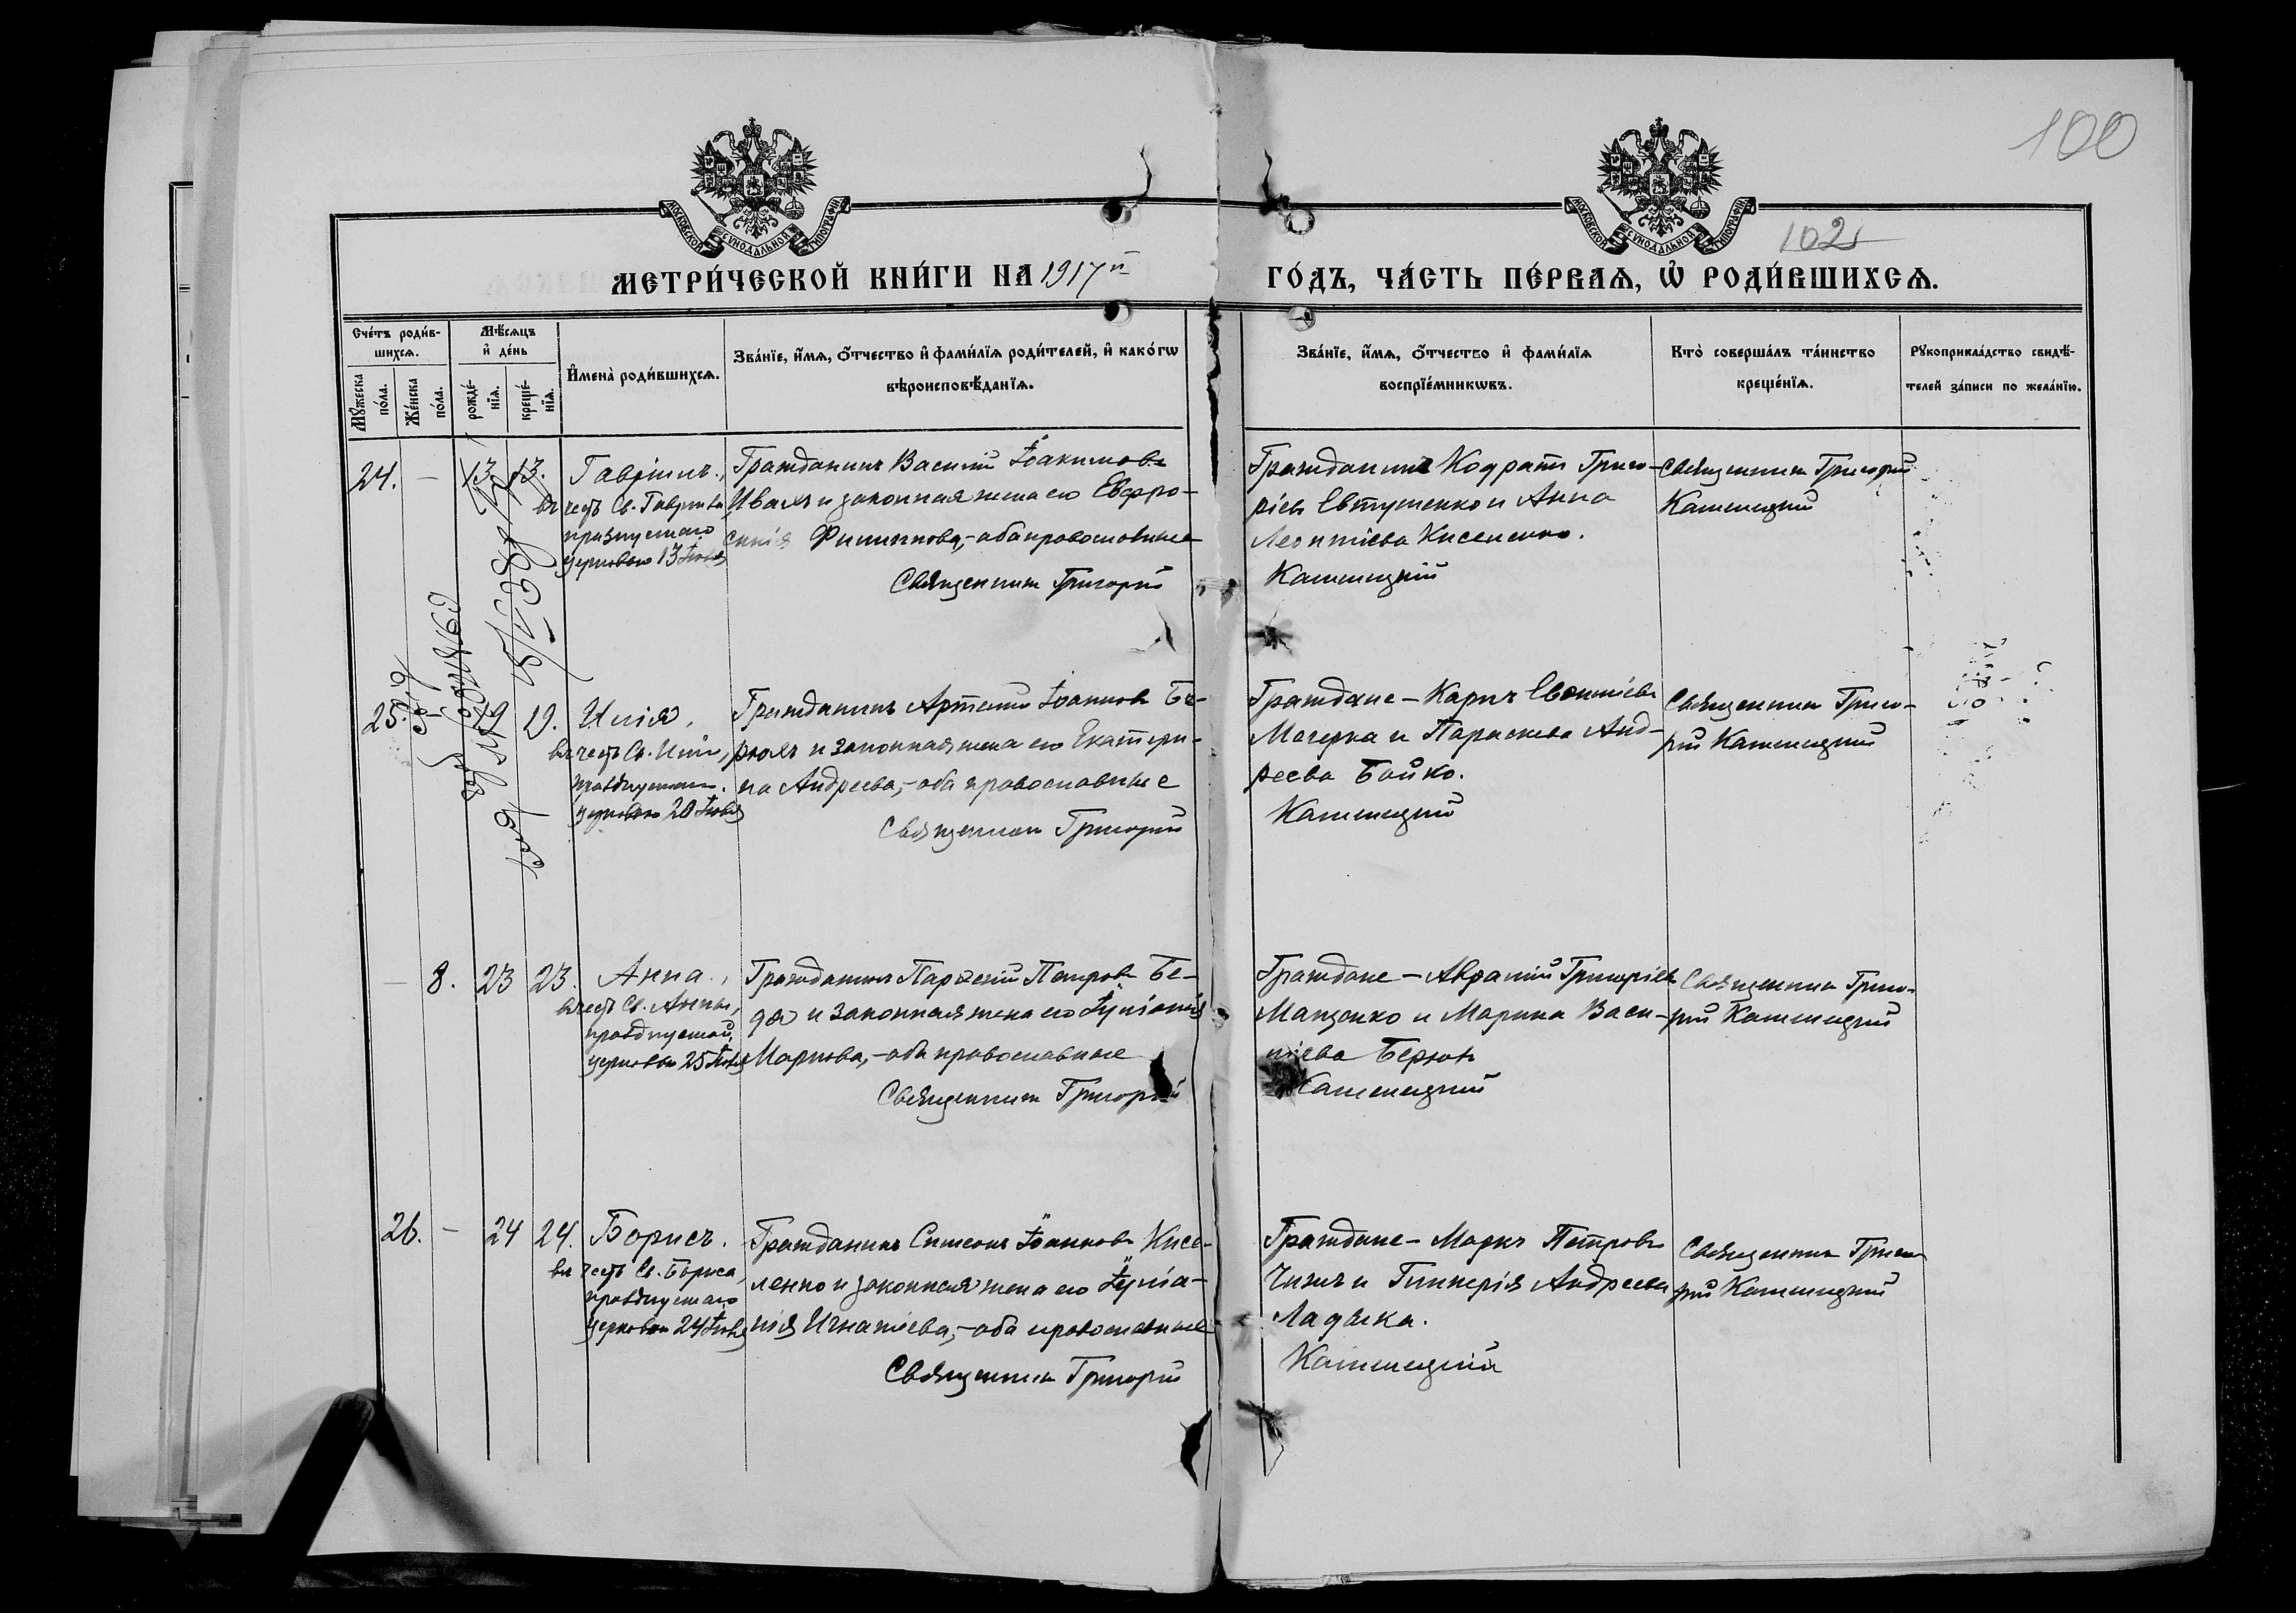 100
МОСКОВСКОЙ СѴНОДАЛЬНОЙ ТИПОГРАФІИ
МОСКОВСКОЙ СѴНОДАЛЬНОЙ ТИПОГРАФІИ
102
МЕТРИ́ЧЕСКОЙ КНИ́ГИ НА 1917й
ГО́ДЪ, ЧА́СТЬ ПЕ́РВАѦ, Ѡ҆ РОДИ́ВШИХСѦ.
Сче́тъ роди́в-
шихсѧ.
Мѣ́сѧцъ
и҆ де́нь
Мꙋ́жеска
по́ла.
Же́нска
по́ла.
рожде́-
нїѧ.
креще́-
нїѧ.
И҆мена̀ роди́вшихсѧ.
Зва́нїе, и҆́мѧ, ѻ҆́тчество и҆ фами́лїѧ роди́телей, и҆ како́гѡ
вѣроисповѣ́данїѧ.
Зва́нїе, и҆́мѧ, ѻ҆́тчество и҆ фами́лїѧ
воспрїе́мникѡвъ.
Кто̀ соверша́лъ та́инство
креще́нїѧ.
Рꙋкоприкла́дство свидѣ́-
телей за́писи по жела́нїю.
24. — 13. 13. Гавріилъ,
въ честь Св. Гавріила
празднуемаго
церковью 13 Іюля
Гражданинъ Василій Іоакимовъ
Иваль и законная жена его Евфро-
синія Филиппова, - оба православные
Священникъ Григорій
Гражданинъ Кодратъ Григо-
ріевъ Евтушенко и Анна
Леонтіева Киселенко.
Каменецкій
Священникъ Григорій
Каменецкій
25. 19 19. Илія,
въ честь Св. Иліи,
празднуемаго
церковью 20 Іюля
Гражданинъ Артемій Іоанновъ Бе-
рюлъ и законная жена его Екатери-
на Андреева, - оба православные
Священникъ Григорій
Граждане - Карпъ Евстиміевъ
Мачерка и Параскева Анд-
реева Бойко.
Каменецкій
Священникъ Григо-
рій Каменецкій
— 8. 23 23. Анна,
въ честь Св. Анны,
празднуемой
церковью 25 Іюля
Гражданинъ Парѳеній Петровъ Бе-
да и законная жена его Іуліанія
Маркова, - оба православные
Священникъ Григорій
Граждане - Аврамій Григоріевъ
Маценко и Марина Васи-
ліева Берюлъ
Каменецкій
Священникъ Григо-
рій Каменецкій
26. — 24 24. Борисъ.
въ честь Св. Бориса,
празднуемаго
церковью 24 Іюля
Гражданинъ Симеонъ Іоанновъ Кисе-
ленко и законная жена его Іуліа-
нія Игнатіева, - оба православные
Священникъ Григорій
Граждане - Маркъ Петровъ
Чижъ и Гликерія Андреева
Ладыка.
Каменецкій
Священникъ Григо-
рій Каменецкій